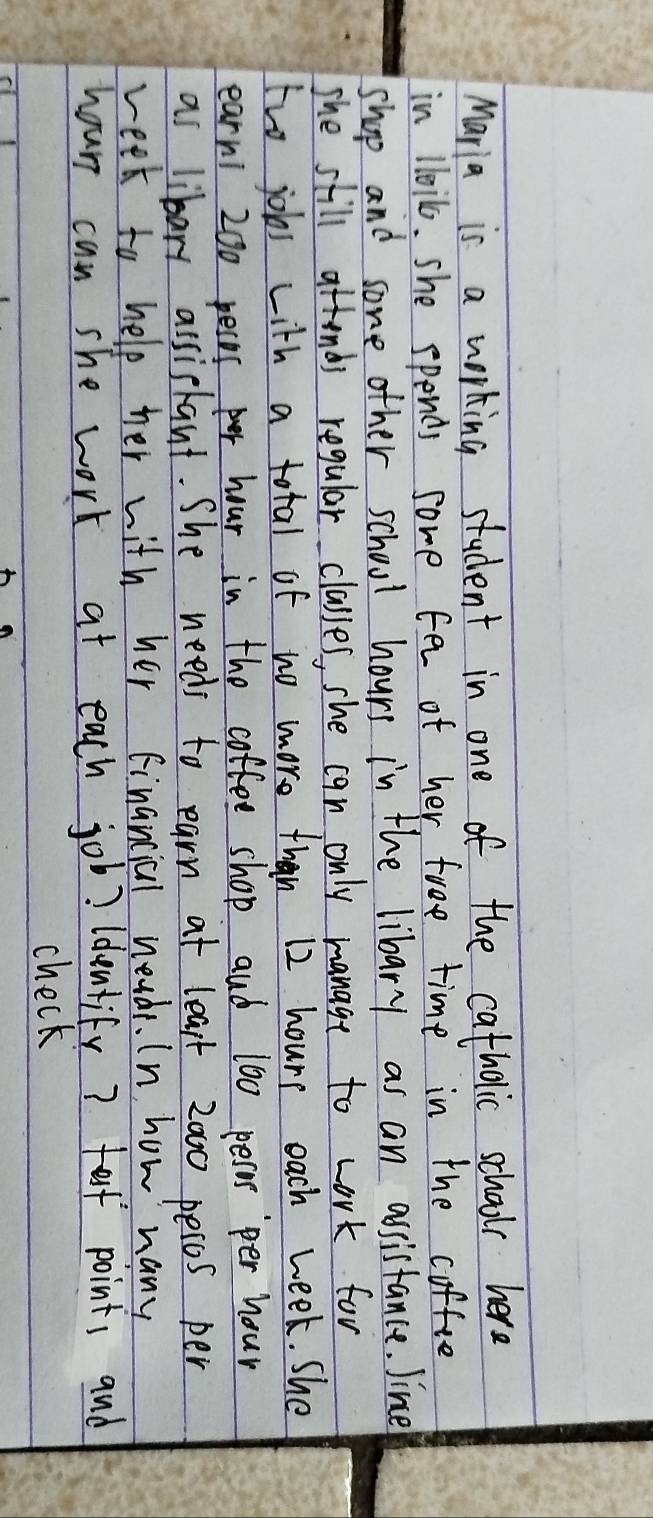 Maria is a working student in one of the catholic schools here
in Iloilo. She spends some few of her free time in the coffee
shop and some other school hours in the libary as an assistance. Sine
she still attends regular classes, she can only manage to work for
two jobs with a total of no more than 12 hours each week. She
earns 200 pesos per hour in the coffee shop and 100 pesos per hour
as libary assistant. She needs to earn at least 2000 pesos per
week to help her with her financial needs. In how many
hours can she work at each job? Identify 2 test points and
check